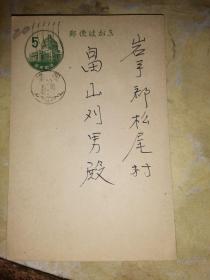 2011111
5
郵便はがき
岩手郡松尾村
畠山刈男殿